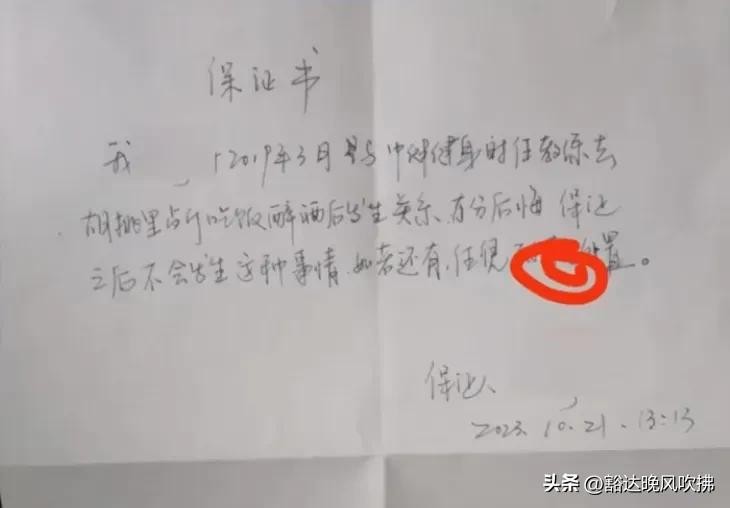 保证书
我 于2019年3月 与中健健身时任教练去
胡桃里音乐吃饭醉酒后发生关系.万分后悔 保证
之后不会发生这种事情.如若还有.任凭 处置。
保证人
2023. 10. 21. 13:13
头条 @豁达晚风吹拂